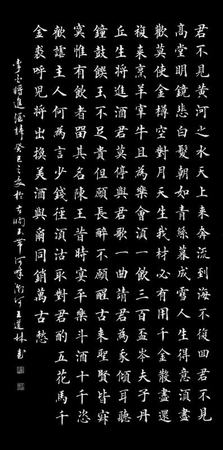 君不見黃河之水天上來奔流到海不復回君不見
高堂明鏡悲白髮朝如青絲暮成雪人生得意須盡
歡莫使金樽空對月天生我材必有用千金散盡還
復來烹羊宰牛且為樂會須一飲三百盃岑夫子丹
丘生將進酒君莫停與君歌一曲請君為我傾耳聽
鐘鼓饌玉不足長醉不願醒古來聖賢皆
寞惟有飲者留其名陳王昔時宴平樂斗酒十千恣
歡謔主人何為言少錢徑須沽取對君酌五花馬千
金裘呼兒將出換美酒與爾同銷萬古愁
李白將進酒詩癸巳之夏於古王道林書